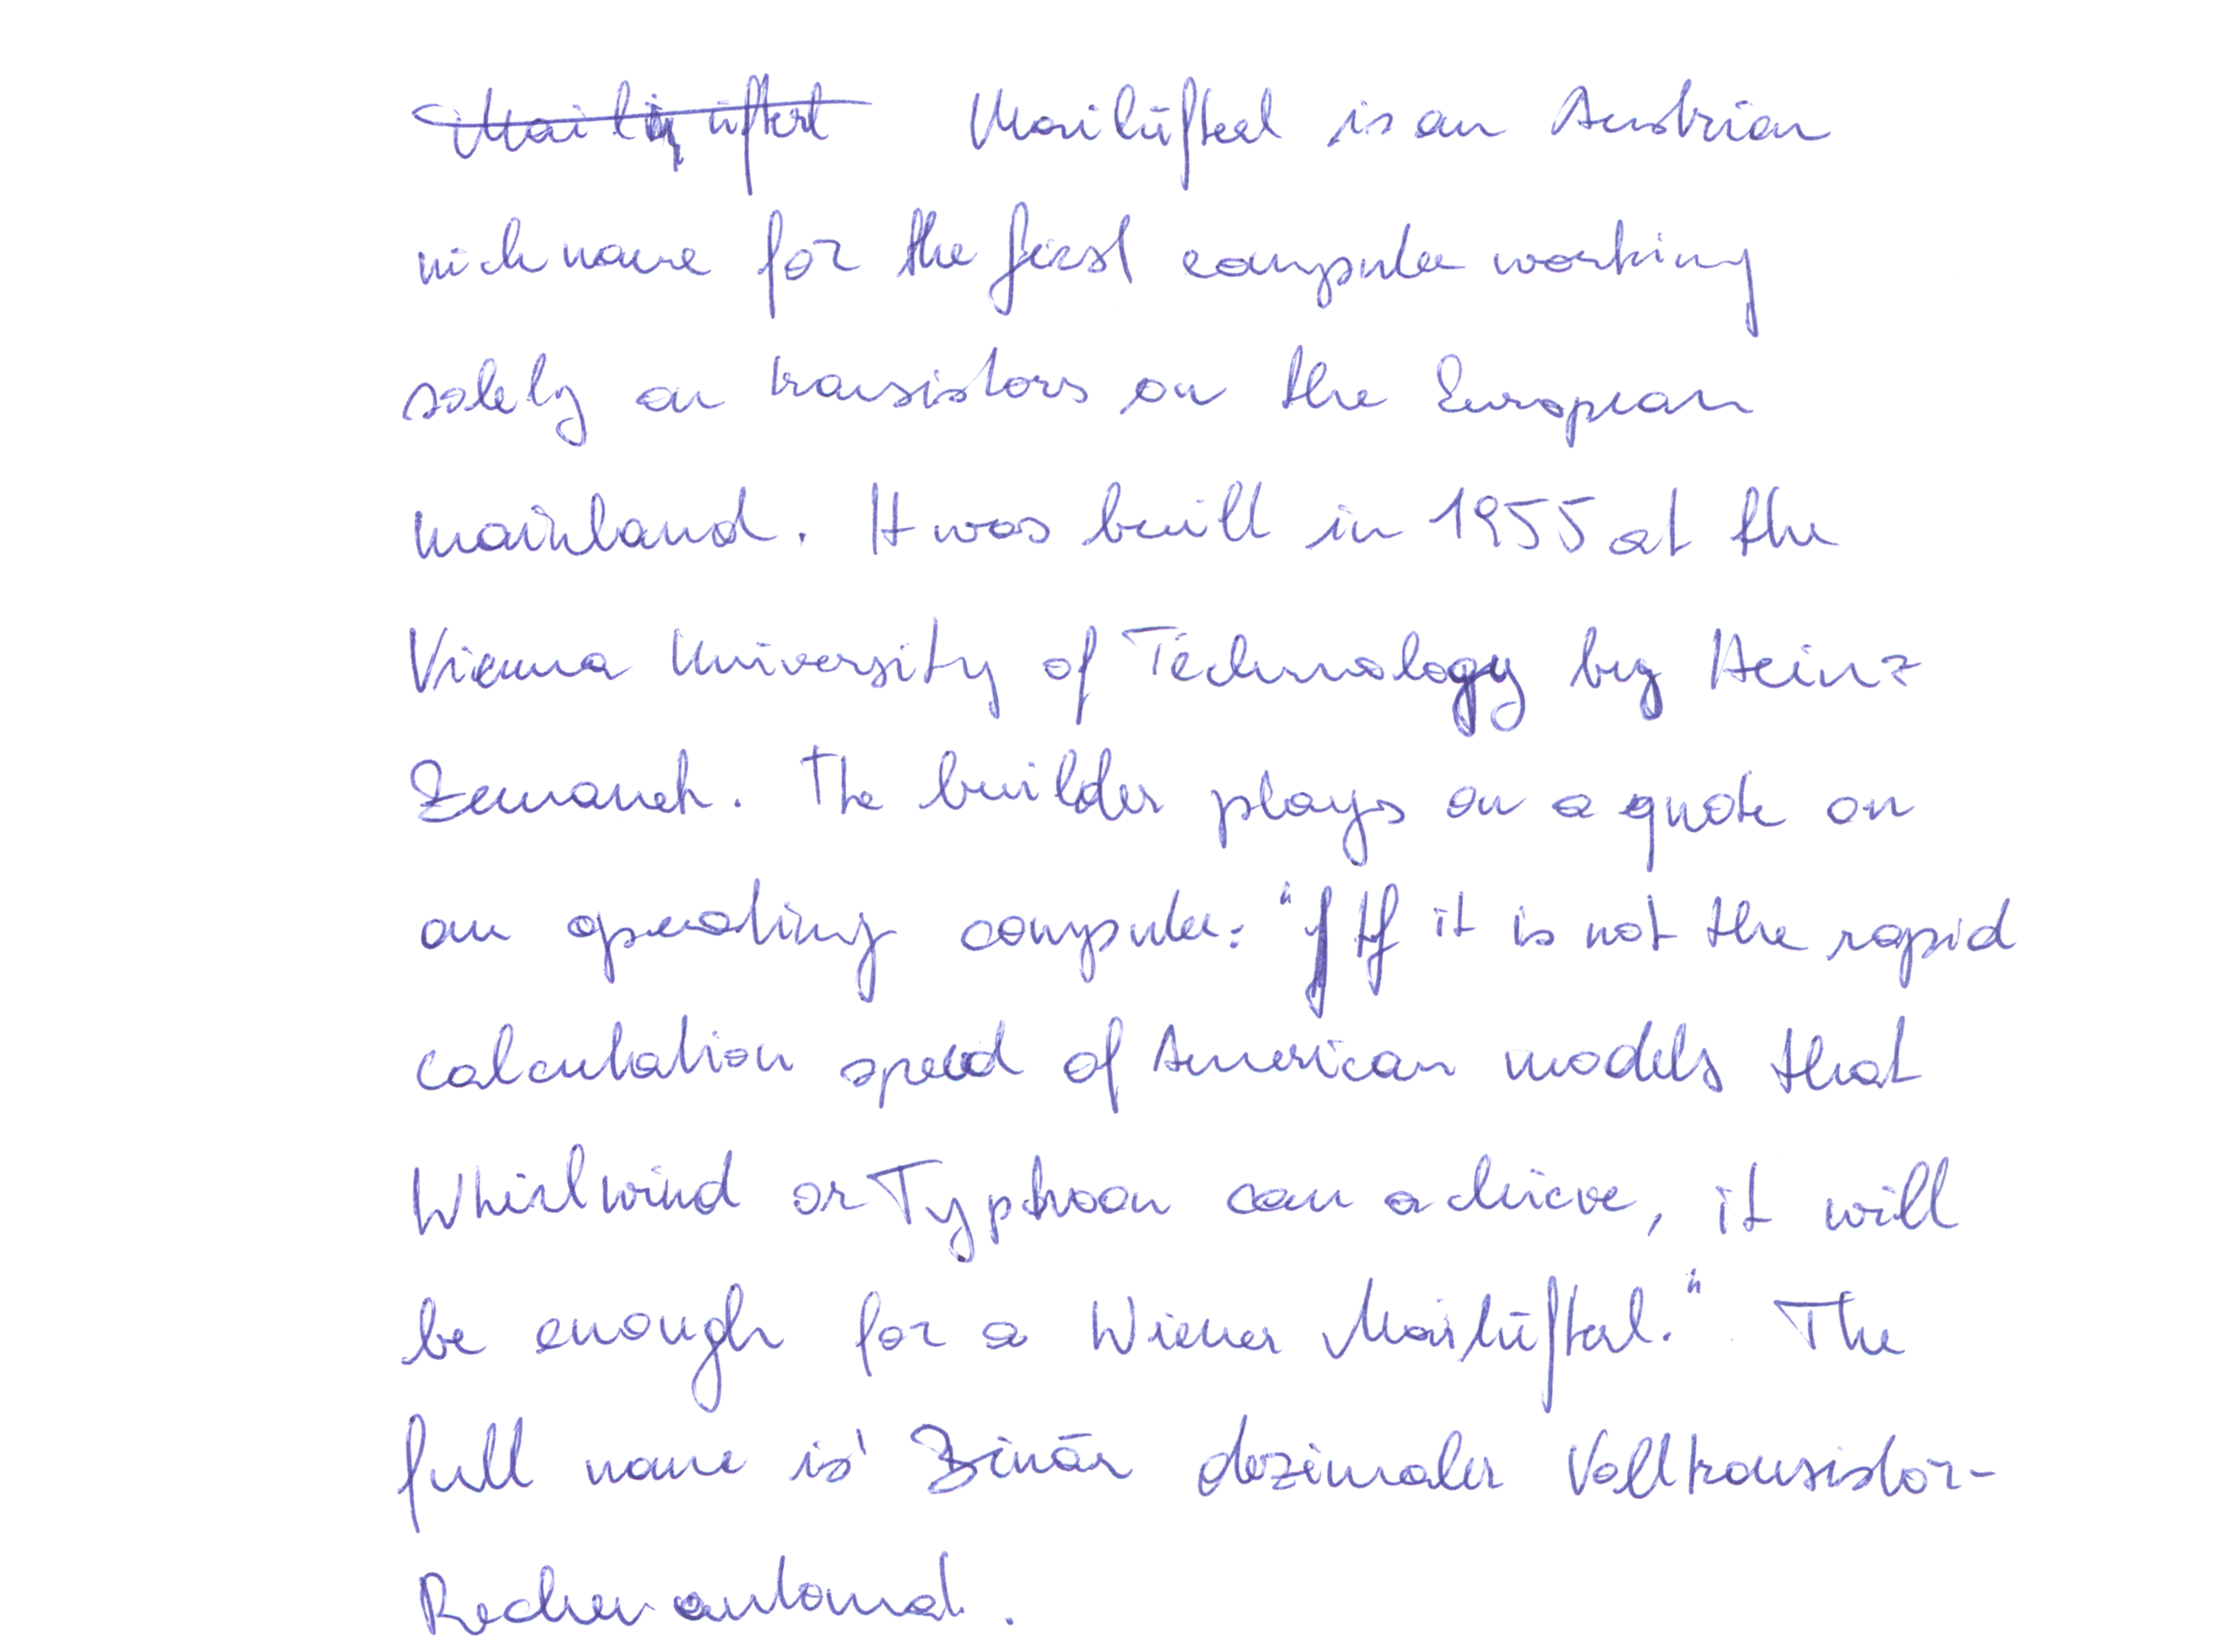 Mailüfterl Mailüfterl is an Austrian
nickname for the first computer working
solely on transistors on the European
mainland. It was built in 1955 at the
Vienna University of Technology by Heinz
Zemanek. The builder plays on a quote on
an operating computer: "If it is not the rapid
calculation speed of American models that
Whirlwind or Typhoon can achieve, it will
be enough for a Wiener Mailüfterl." The
full name is Binär dezimaler Volltransistor-
Rechenautomat.